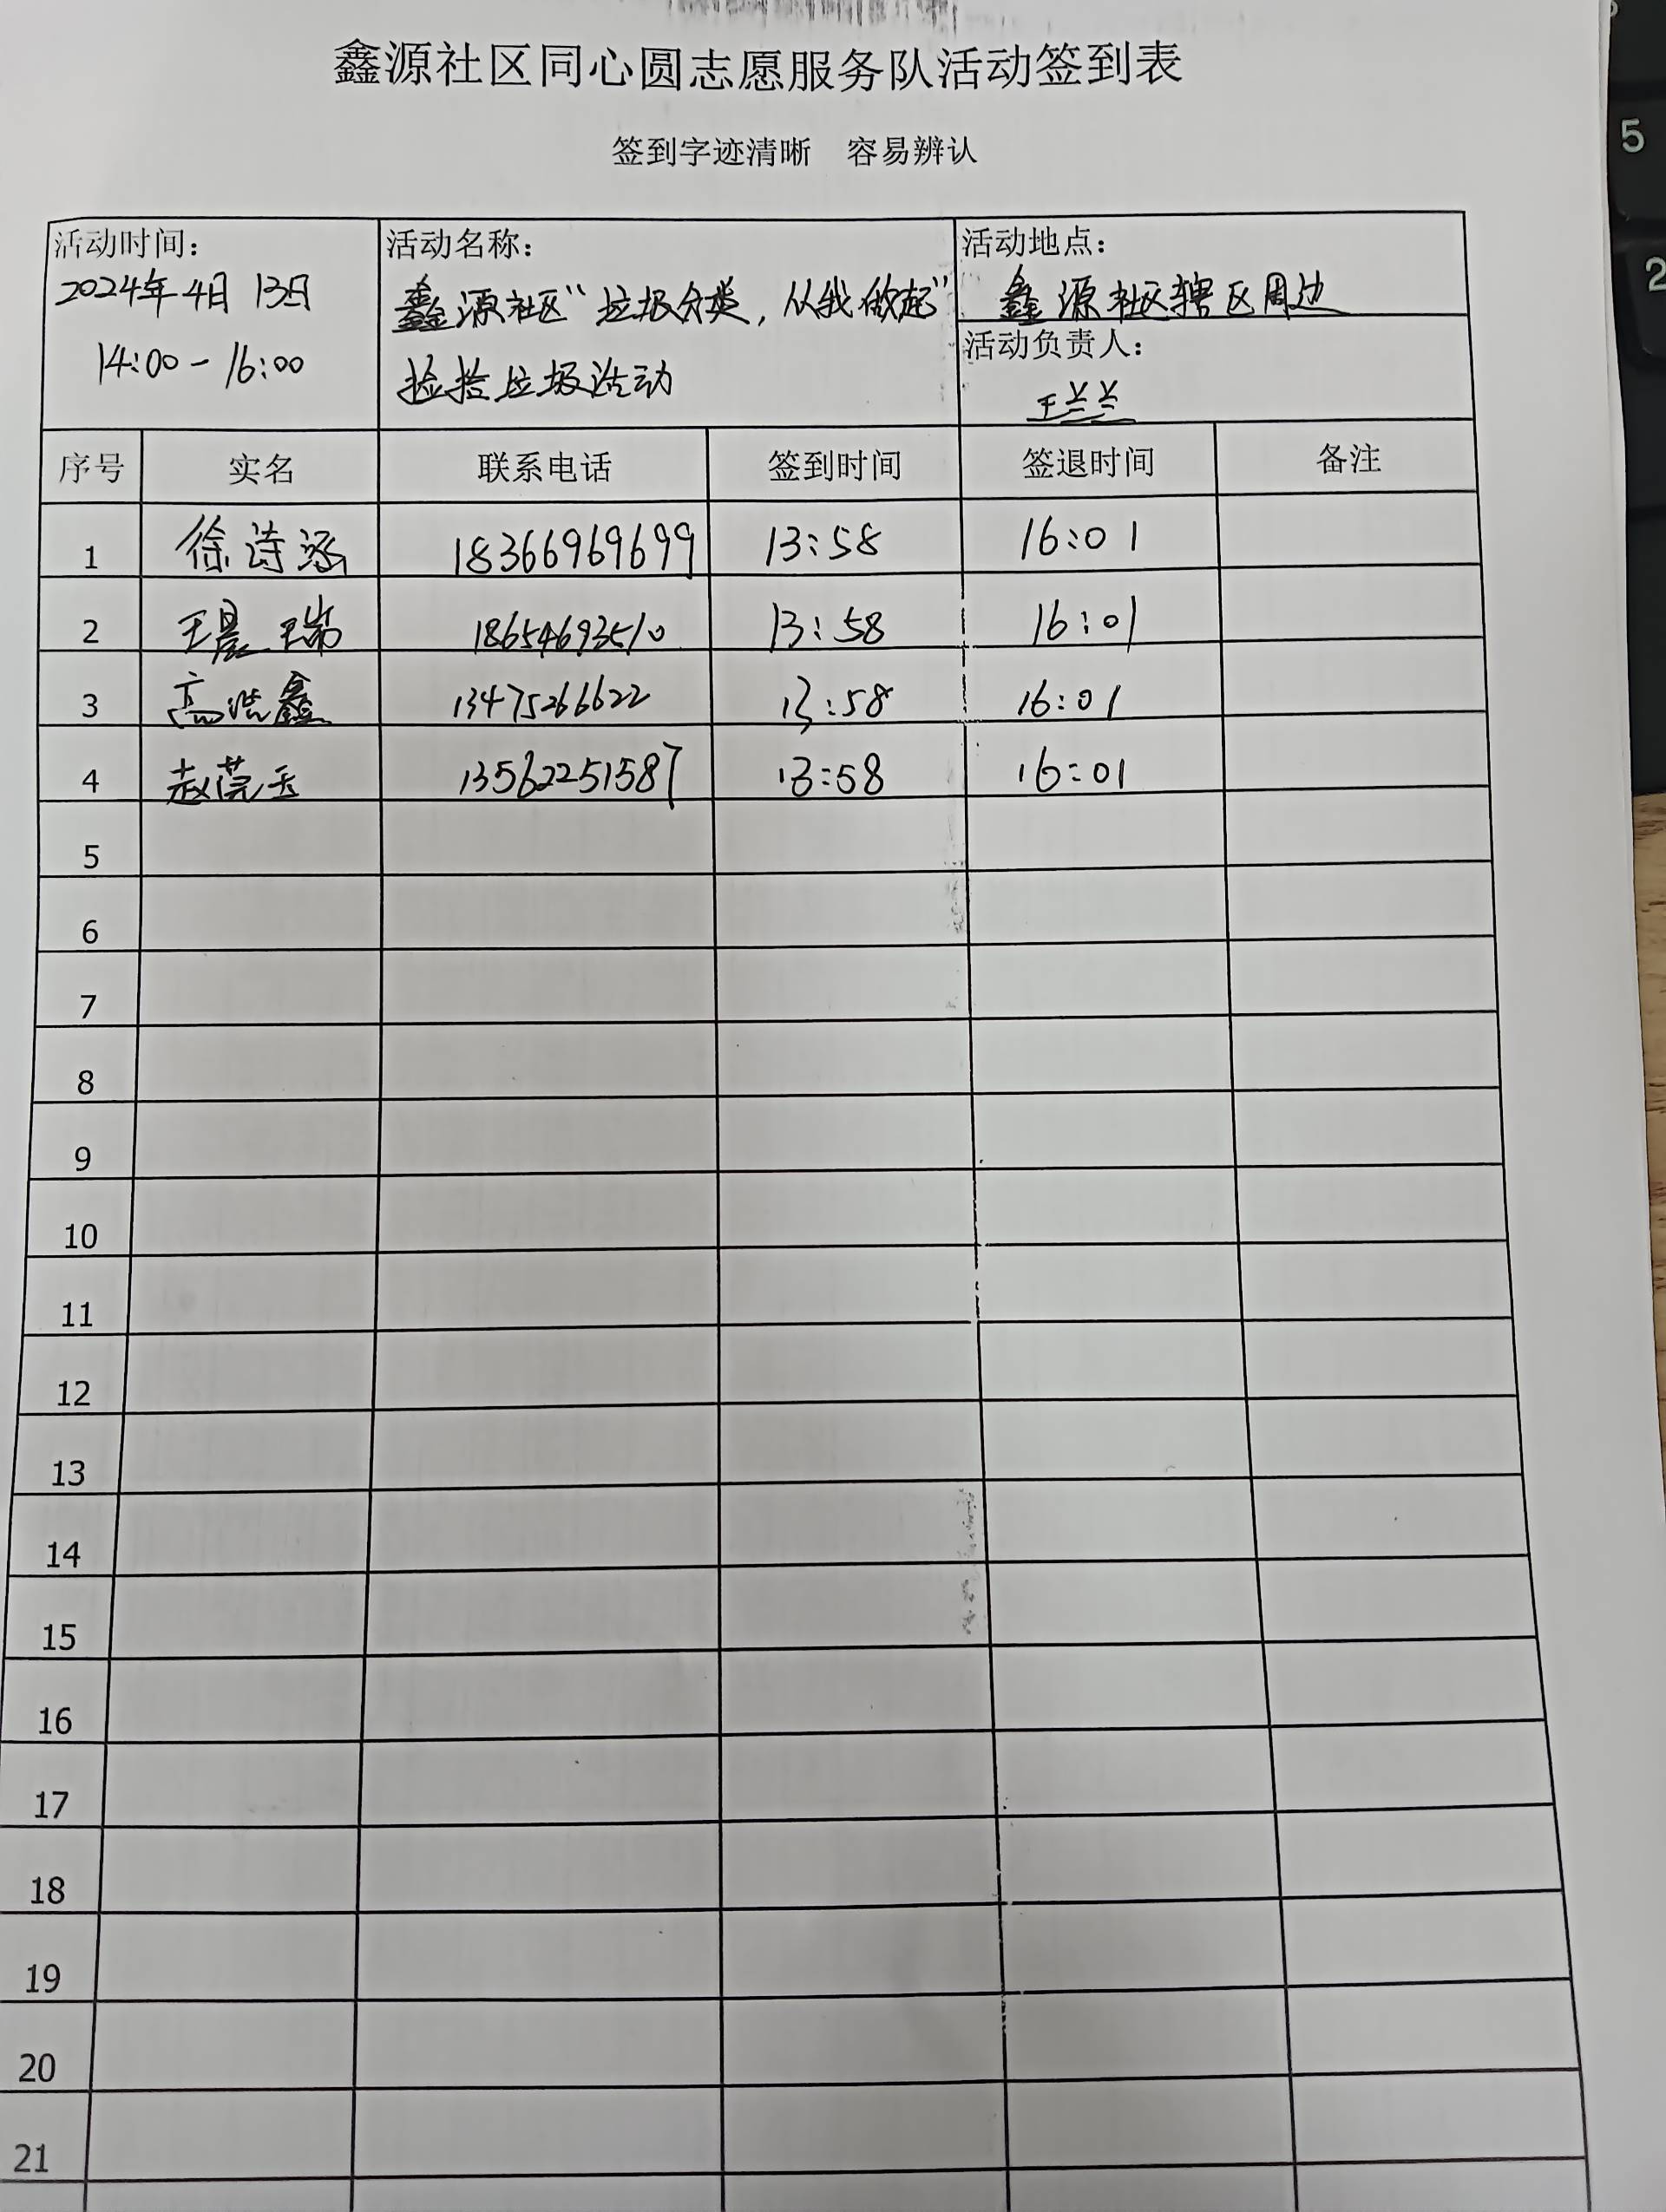 鑫源社区同心圆志愿服务队活动签到表
签到字迹清晰 容易辨认
活动时间：
2024年4月13日
14:00-16:00
活动名称：
鑫源社区“垃圾分类，从我做起”
捡拾垃圾活动
活动地点：
鑫源社区辖区周边
活动负责人：
王兰兰
序号 实名 联系电话 签到时间 签退时间 备注
1 徐诗涵 18366969699 13:58 16:01
2 王晨瑞 18654693510 13:58 16:01
3 高浩鑫 13475266622 13:58 16:01
4 赵莞玉 13562251587 13:58 16:01
5
6
7
8
9
10
11
12
13
14
15
16
17
18
19
20
21
5
2